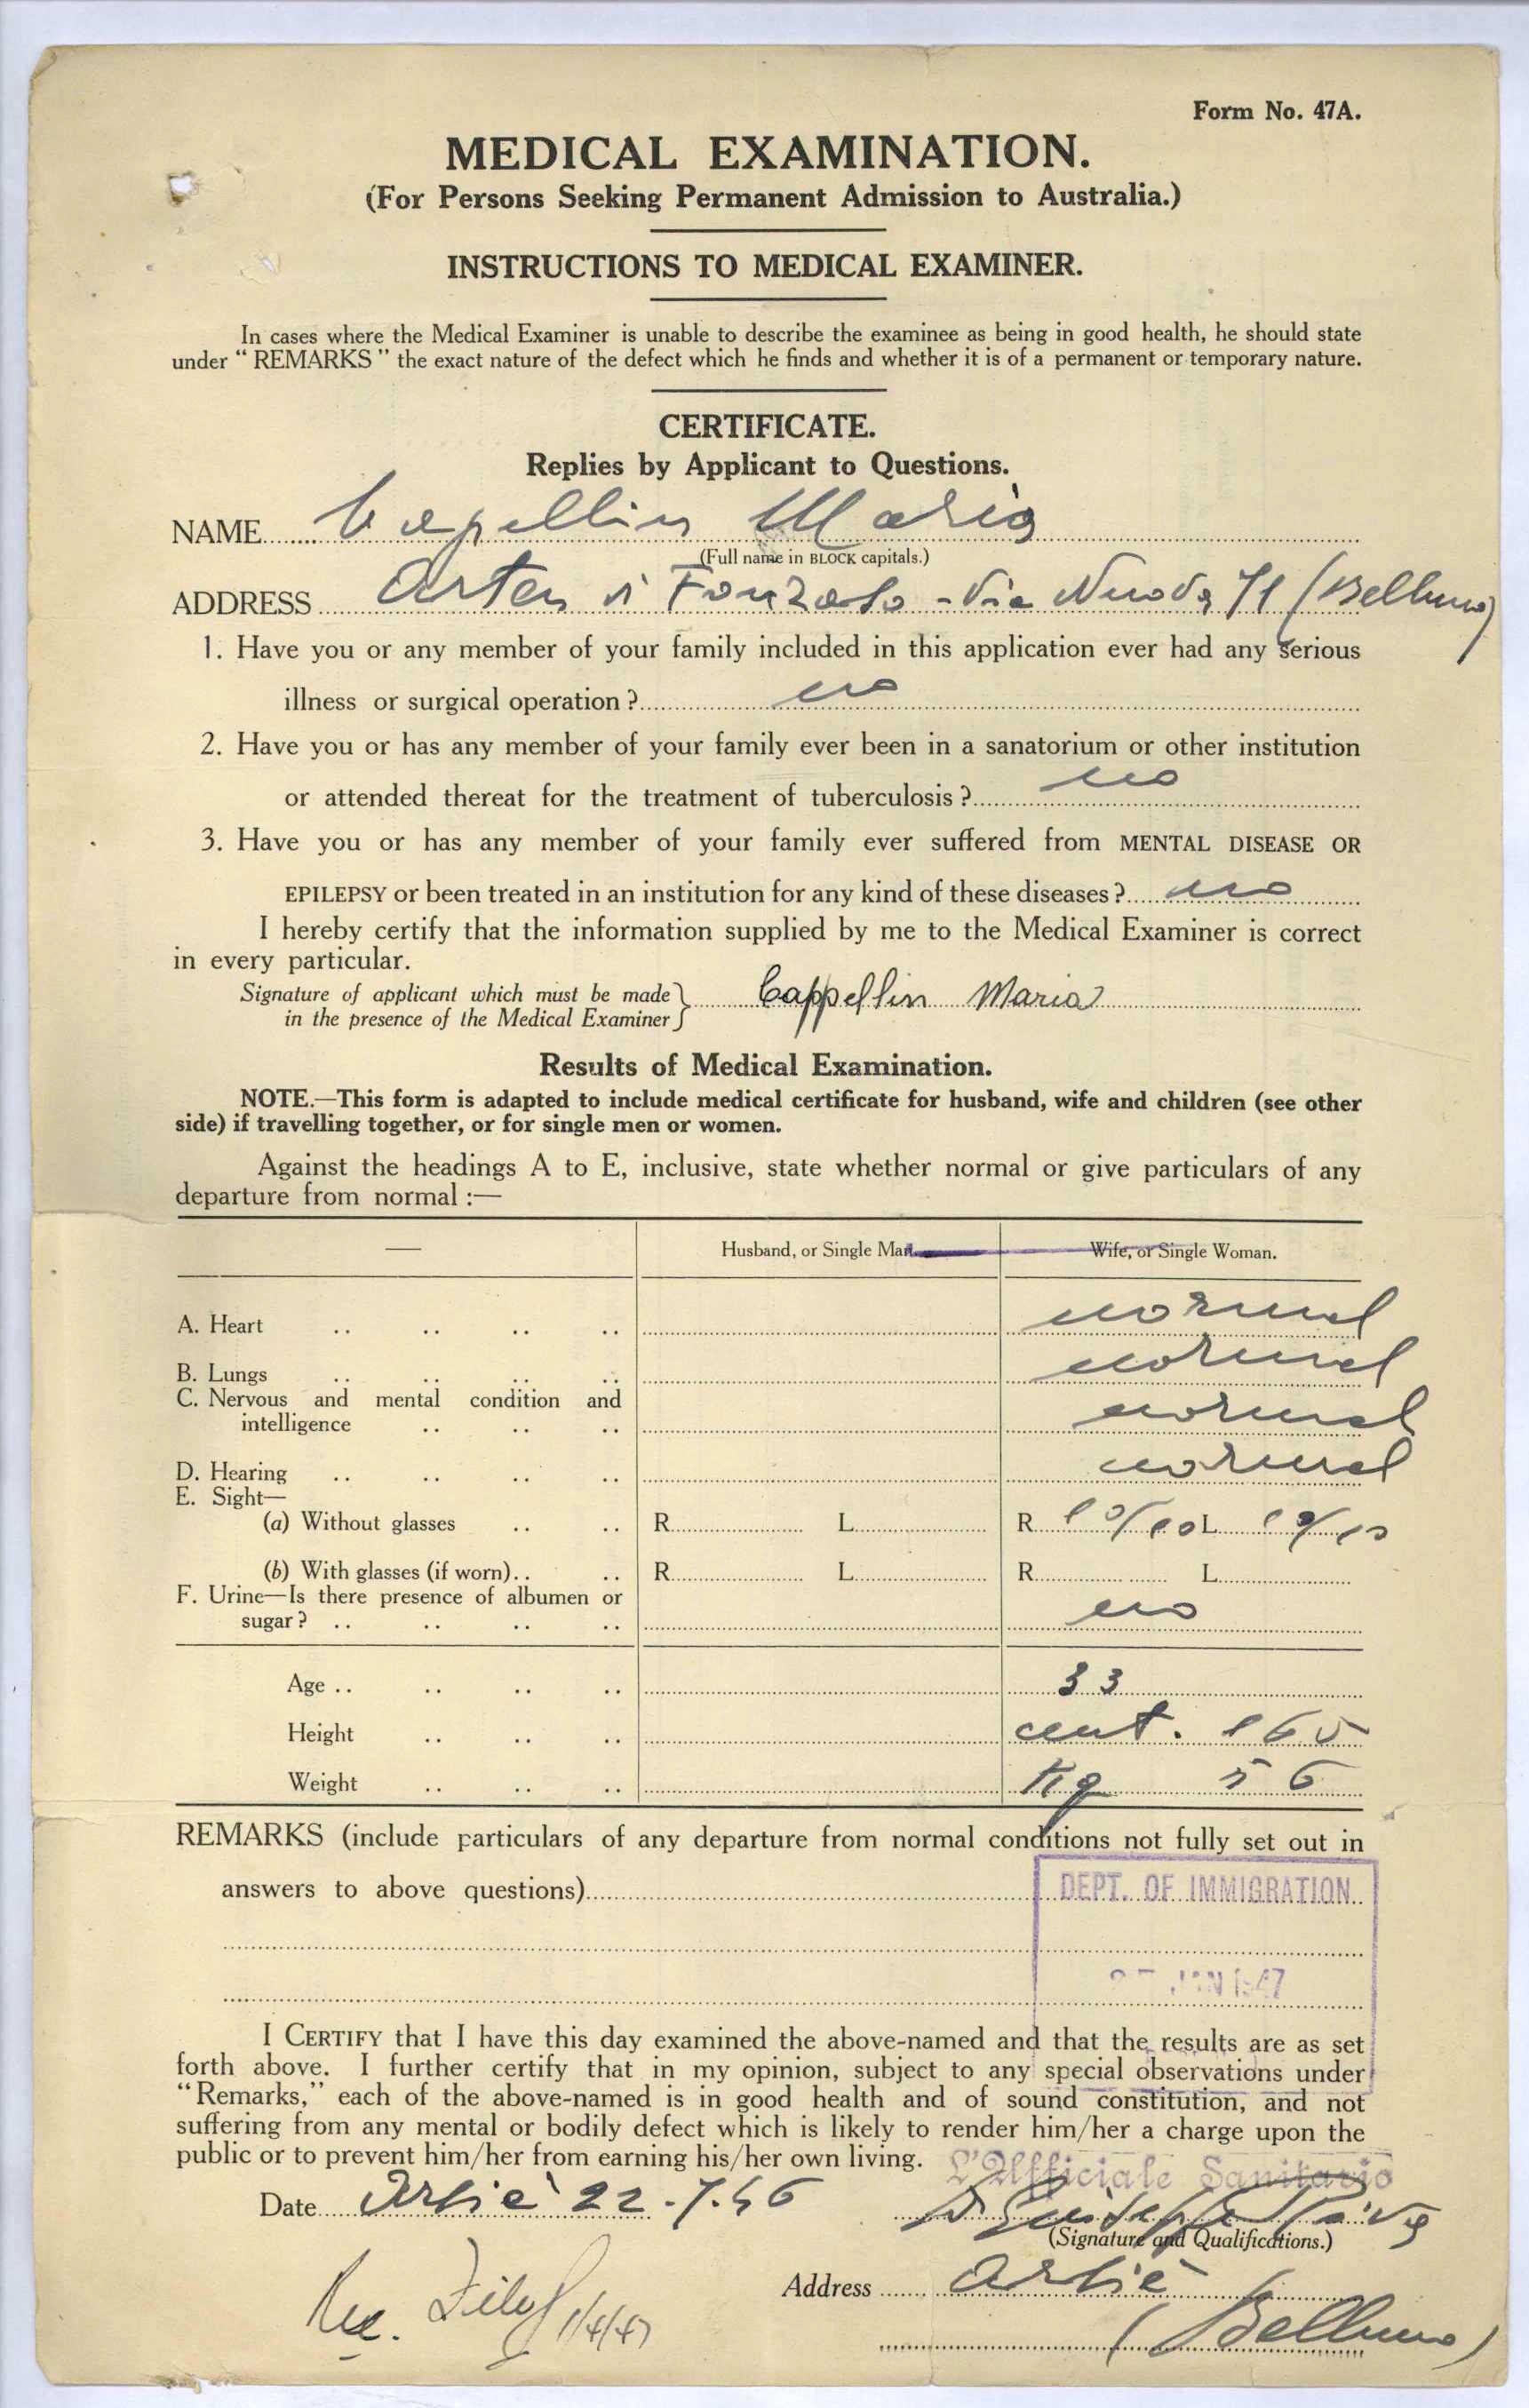 Form No. 47A.
MEDICAL EXAMINATION.
(For Persons Seeking Permanent Admission to Australia.)
INSTRUCTIONS TO MEDICAL EXAMINER.
In cases where the Medical Examiner is unable to describe the examinee as being in good health, he should state
under “ REMARKS ” the exact nature of the defect which he finds and whether it is of a permanent or temporary nature.
CERTIFICATE.
Replies by Applicant to Questions.
NAME Capellin Maria
(Full name in BLOCK capitals.)
ADDRESS Arten di Fonzaso - Via Nuova 71 (Belluno)
1. Have you or any member of your family included in this application ever had any serious
illness or surgical operation ? no
2. Have you or has any member of your family ever been in a sanatorium or other institution
or attended thereat for the treatment of tuberculosis ? no
3. Have you or has any member of your family ever suffered from MENTAL DISEASE OR
EPILEPSY or been treated in an institution for any kind of these diseases ? no
I hereby certify that the information supplied by me to the Medical Examiner is correct
in every particular.
Signature of applicant which must be made
in the presence of the Medical Examiner } Cappellin Maria
Results of Medical Examination.
NOTE.—This form is adapted to include medical certificate for husband, wife and children (see other
side) if travelling together, or for single men or women.
Against the headings A to E, inclusive, state whether normal or give particulars of any
departure from normal :—
— Husband, or Single Man. Wife, or Single Woman.
A. Heart .. .. .. .. normal
B. Lungs .. .. .. .. normal
C. Nervous and mental condition and
intelligence .. .. .. normal
D. Hearing .. .. .. .. normal
E. Sight—
(a) Without glasses .. .. R. L. R. 10/10 L. 10/10
(b) With glasses (if worn) .. .. R. L. R. L.
F. Urine—Is there presence of albumen or
sugar ? .. .. .. .. no
Age .. .. .. .. 33
Height .. .. .. cent. 165
Weight .. .. .. Kg 56
REMARKS (include particulars of any departure from normal conditions not fully set out in
answers to above questions)
DEPT. OF IMMIGRATION
JAN 1947
I CERTIFY that I have this day examined the above-named and that the results are as set
forth above. I further certify that in my opinion, subject to any special observations under
“Remarks,” each of the above-named is in good health and of sound constitution, and not
suffering from any mental or bodily defect which is likely to render him/her a charge upon the
public or to prevent him/her from earning his/her own living.
L'Ufficiale Sanitario
Date Arsiè 22.7.46 Dr Giuseppe
(Signature and Qualifications.)
Address Arsiè
(Belluno)
1/4/47